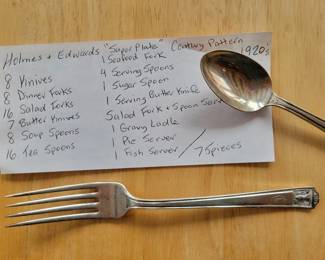 Holmes + Edwards "Super Plate" Century Pattern
1920's
8 Knives
8 Dinner Forks
16 Salad Forks
7 Butter Knives
8 Soup Spoons
16 Tea Spoons
1 Seafood Fork
4 Serving Spoons
1 Sugar Spoon
1 Serving Butter Knife
Salad Fork + Spoon
1 Gravy Ladle
1 Pie Server
1 Fish Server / 75 pieces